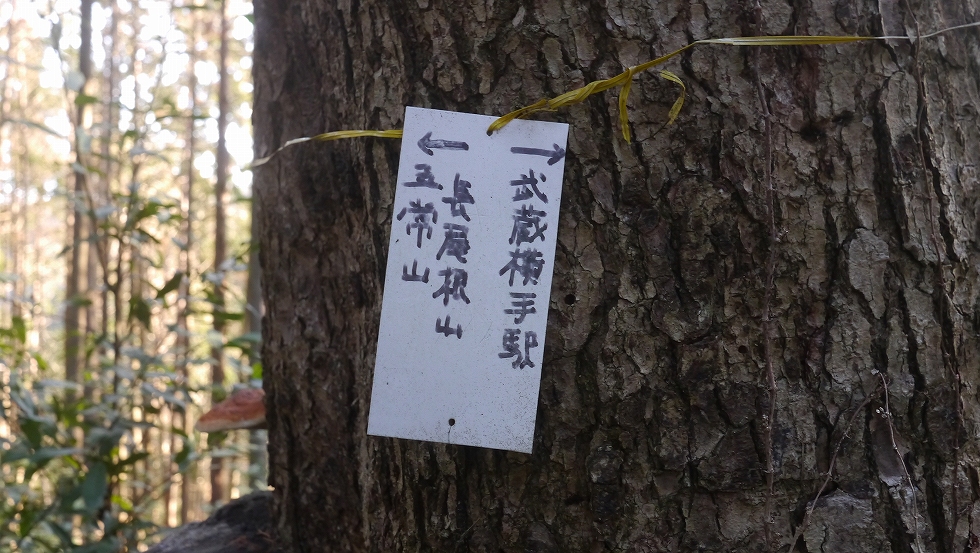 →
武蔵横手駅
←
長尾根山
五常山